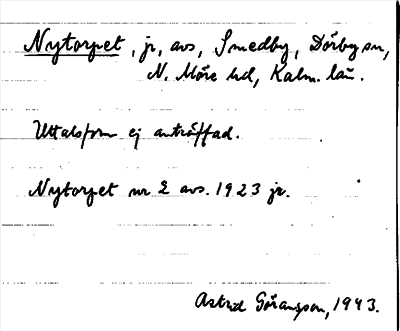 Nytorpet, jr, avs, Smedby, Dörby sn,
N. Möre hd, Kalm. län.
Uttalsform ej anträffad.
Nytorpet nr 2 avs. 1923 jr.
Astrid Göransson, 1943.